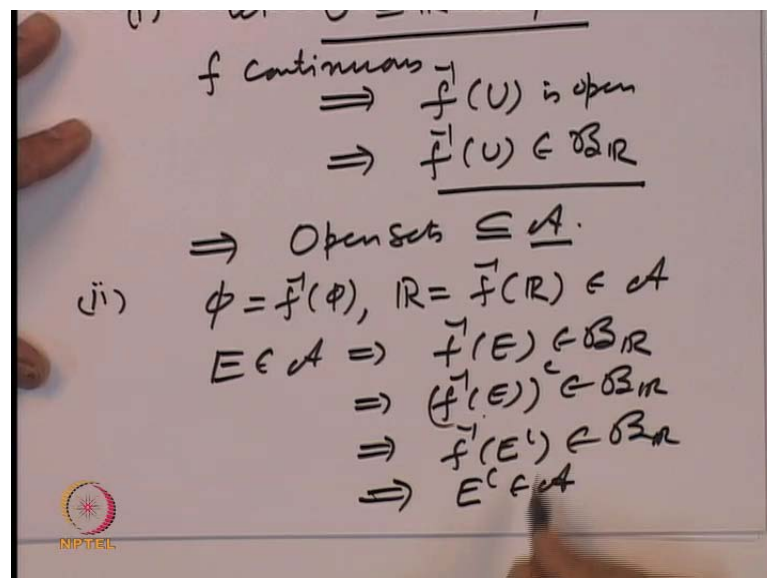 f continuous
⟹ f⁻¹(U) is open
⟹ f⁻¹(U) ∈ 𝓑_ℝ
⟹ Open sets ⊆ 𝒜.
(ii) φ = f⁻¹(φ), ℝ = f⁻¹(ℝ) ∈ 𝒜
E ∈ 𝒜 ⟹ f⁻¹(E) ∈ 𝓑_ℝ
⟹ (f⁻¹(E))ᶜ ∈ 𝓑_ℝ
⟹ f⁻¹(Eᶜ) ∈ 𝓑_ℝ
⟹ Eᶜ ∈ 𝒜
NPTEL